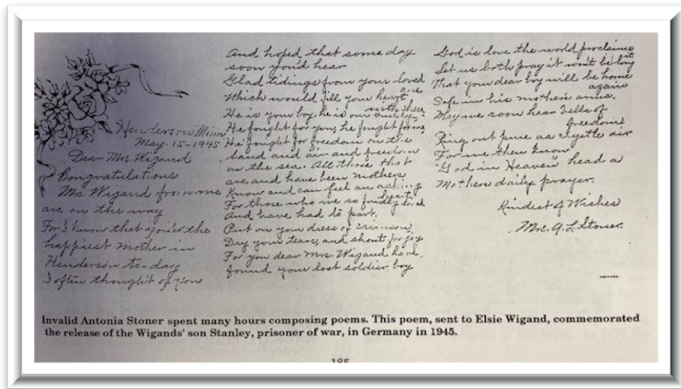 Henderson Minn
May-15-1945
Dear Mrs. Wigand
Congratulations
Mrs. Wigand from me
are on the way
For I know that you're the
happiest mother in
Henderson to-day
I often thought of you
And hoped that some day
soon you'd hear
Glad tidings from your loved
Which would fill your heart
He is your boy, he is our
He fought for you, he fought for me
He fought for freedom on the
land and air and freedom
on the sea. All those that
are and have been mothers
Know and can feel an aching
For those who we so fondly loved
And have had to part.
Put on your dress of crimson
Dry your tears, and shout for joy
For you dear Mrs. Wigand have
found your lost soldier boy
God is love the world proclaims
Let us both pray it won't be long
That your dear boy will be home
again
Safe in his mother's arms.
May we soon hear bells of
freedom
Ring out pure as air
For me then know
"God in Heaven" heard a
Mothers daily prayer.
Kindest of Wishes
Mrs. A. L. Stoner.
Invalid Antonia Stoner spent many hours composing poems. This poem, sent to Elsie Wigand, commemorated
the release of the Wigands' son Stanley, prisoner of war, in Germany in 1945.